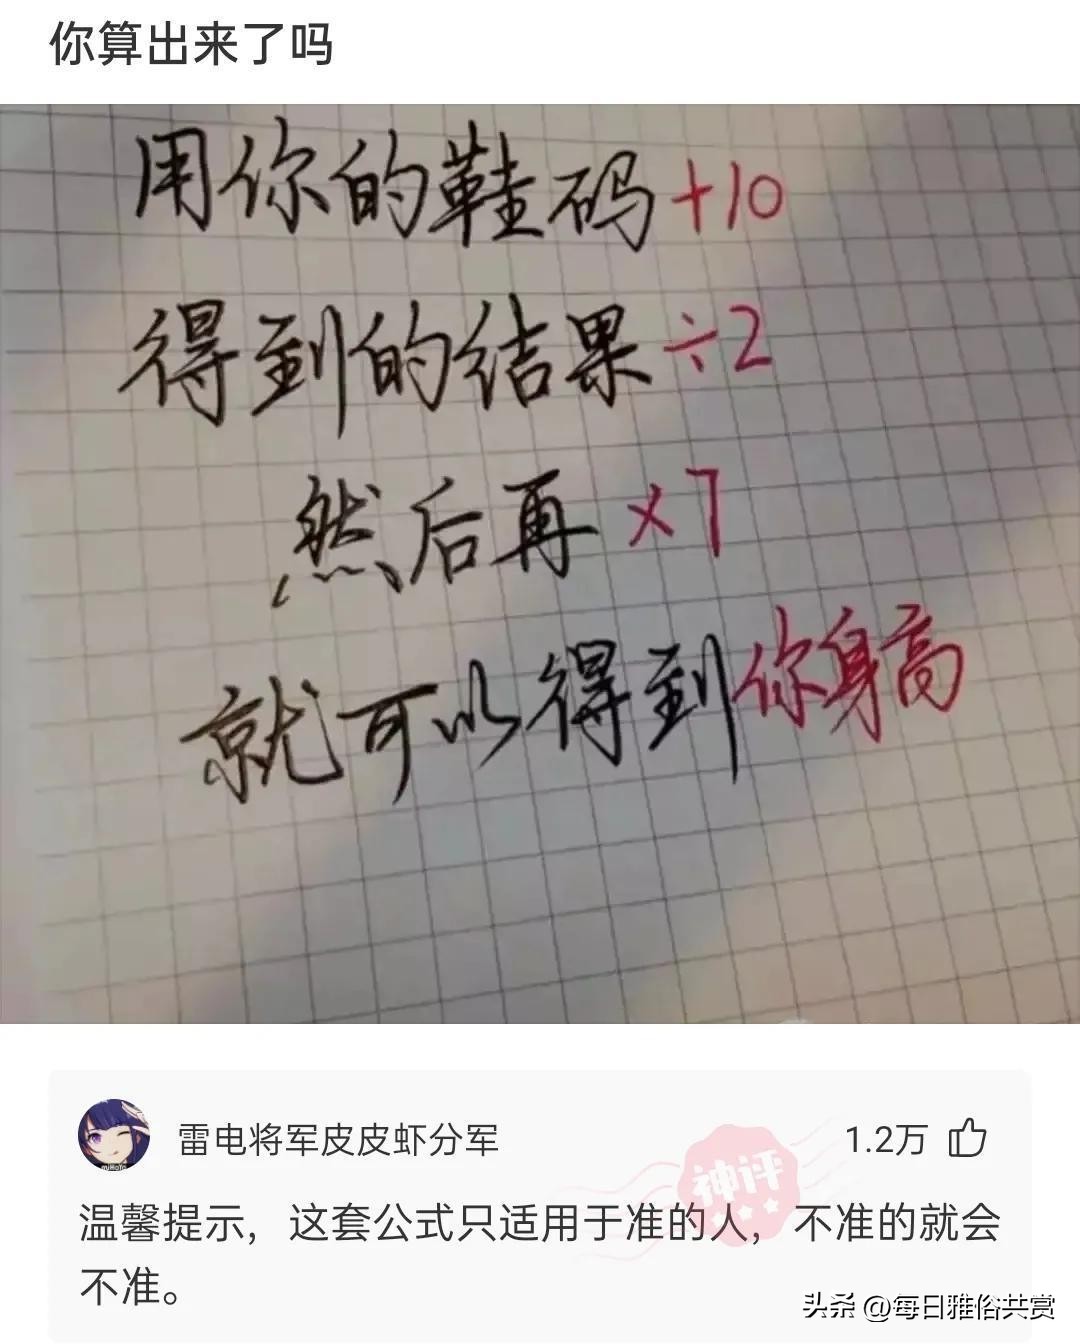 你算出来了吗
用你的鞋码+10
得到的结果÷2
然后再×7
就可以得到你身高
雷电将军皮皮虾分军
1.2万
神评
温馨提示，这套公式只适用于准的人，不准的就会
不准。
头条 @每日雅俗共赏